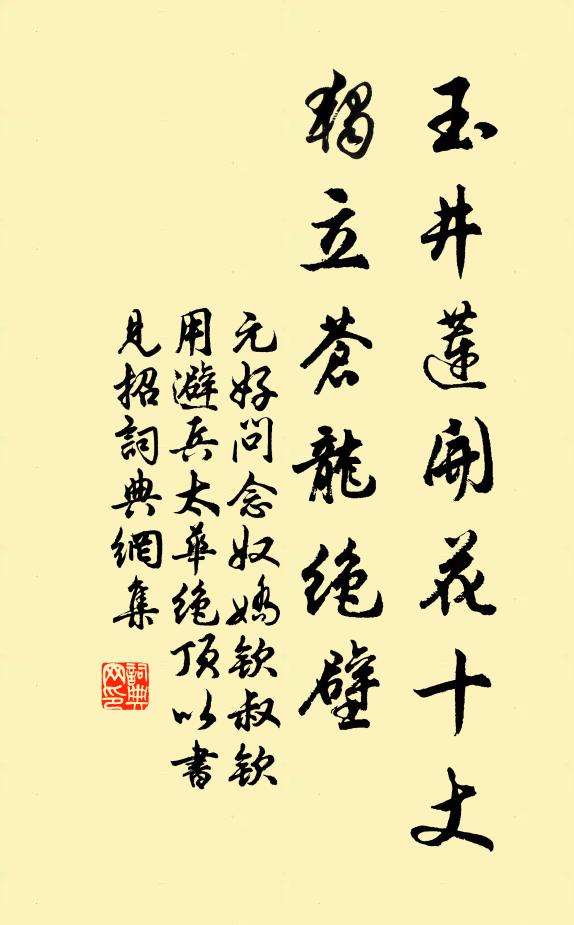 玉井蓮開花十丈
獨立蒼龍絶壁
元好問念奴嬌欽叔欽
用避兵太華絶頂以書
見招詞典網集
詞典網印